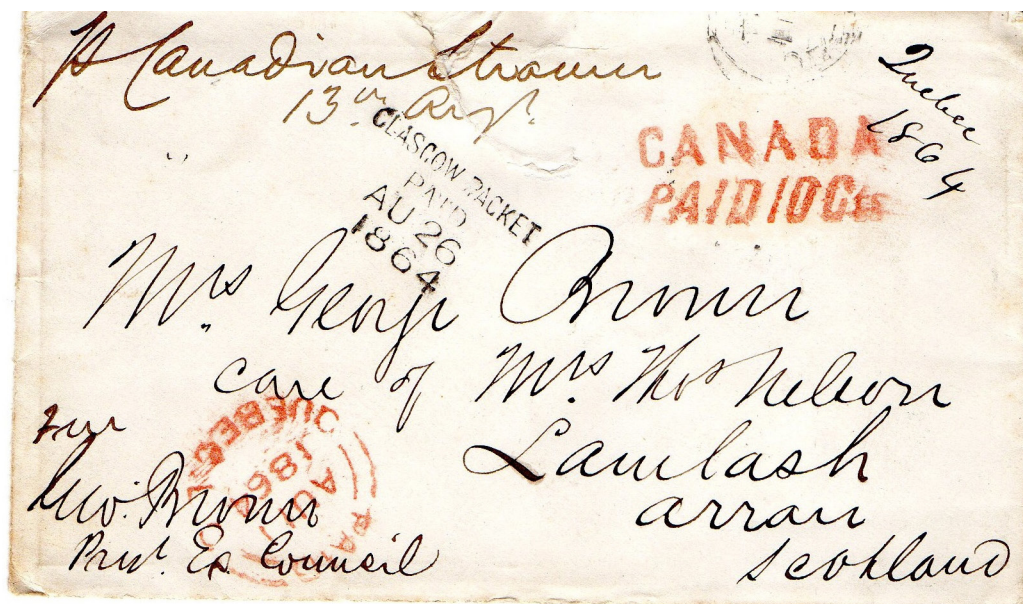 Canadian Steamer
13th Augt.
Quebec
1864
GLASGOW PACKET
PAID
AU 26
1864
CANADA
PAID 10 Cts
Mrs. George Brown
care of Mrs Thos Nelson
Lamlash
Arran
Scotland
QUEBEC
AU
PAID
Geo. Brown
Prest. Ex Council